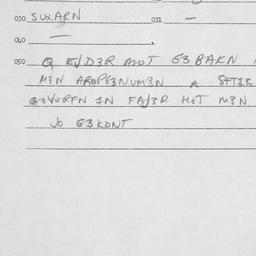 030 SWARN 031 —
040 —
050 Q EJD3R MOT G3BAKN
M3N AROPG3NUM3N A STIK
G3VORFN IN FAJ3R HOT M3N
JO G3KONT